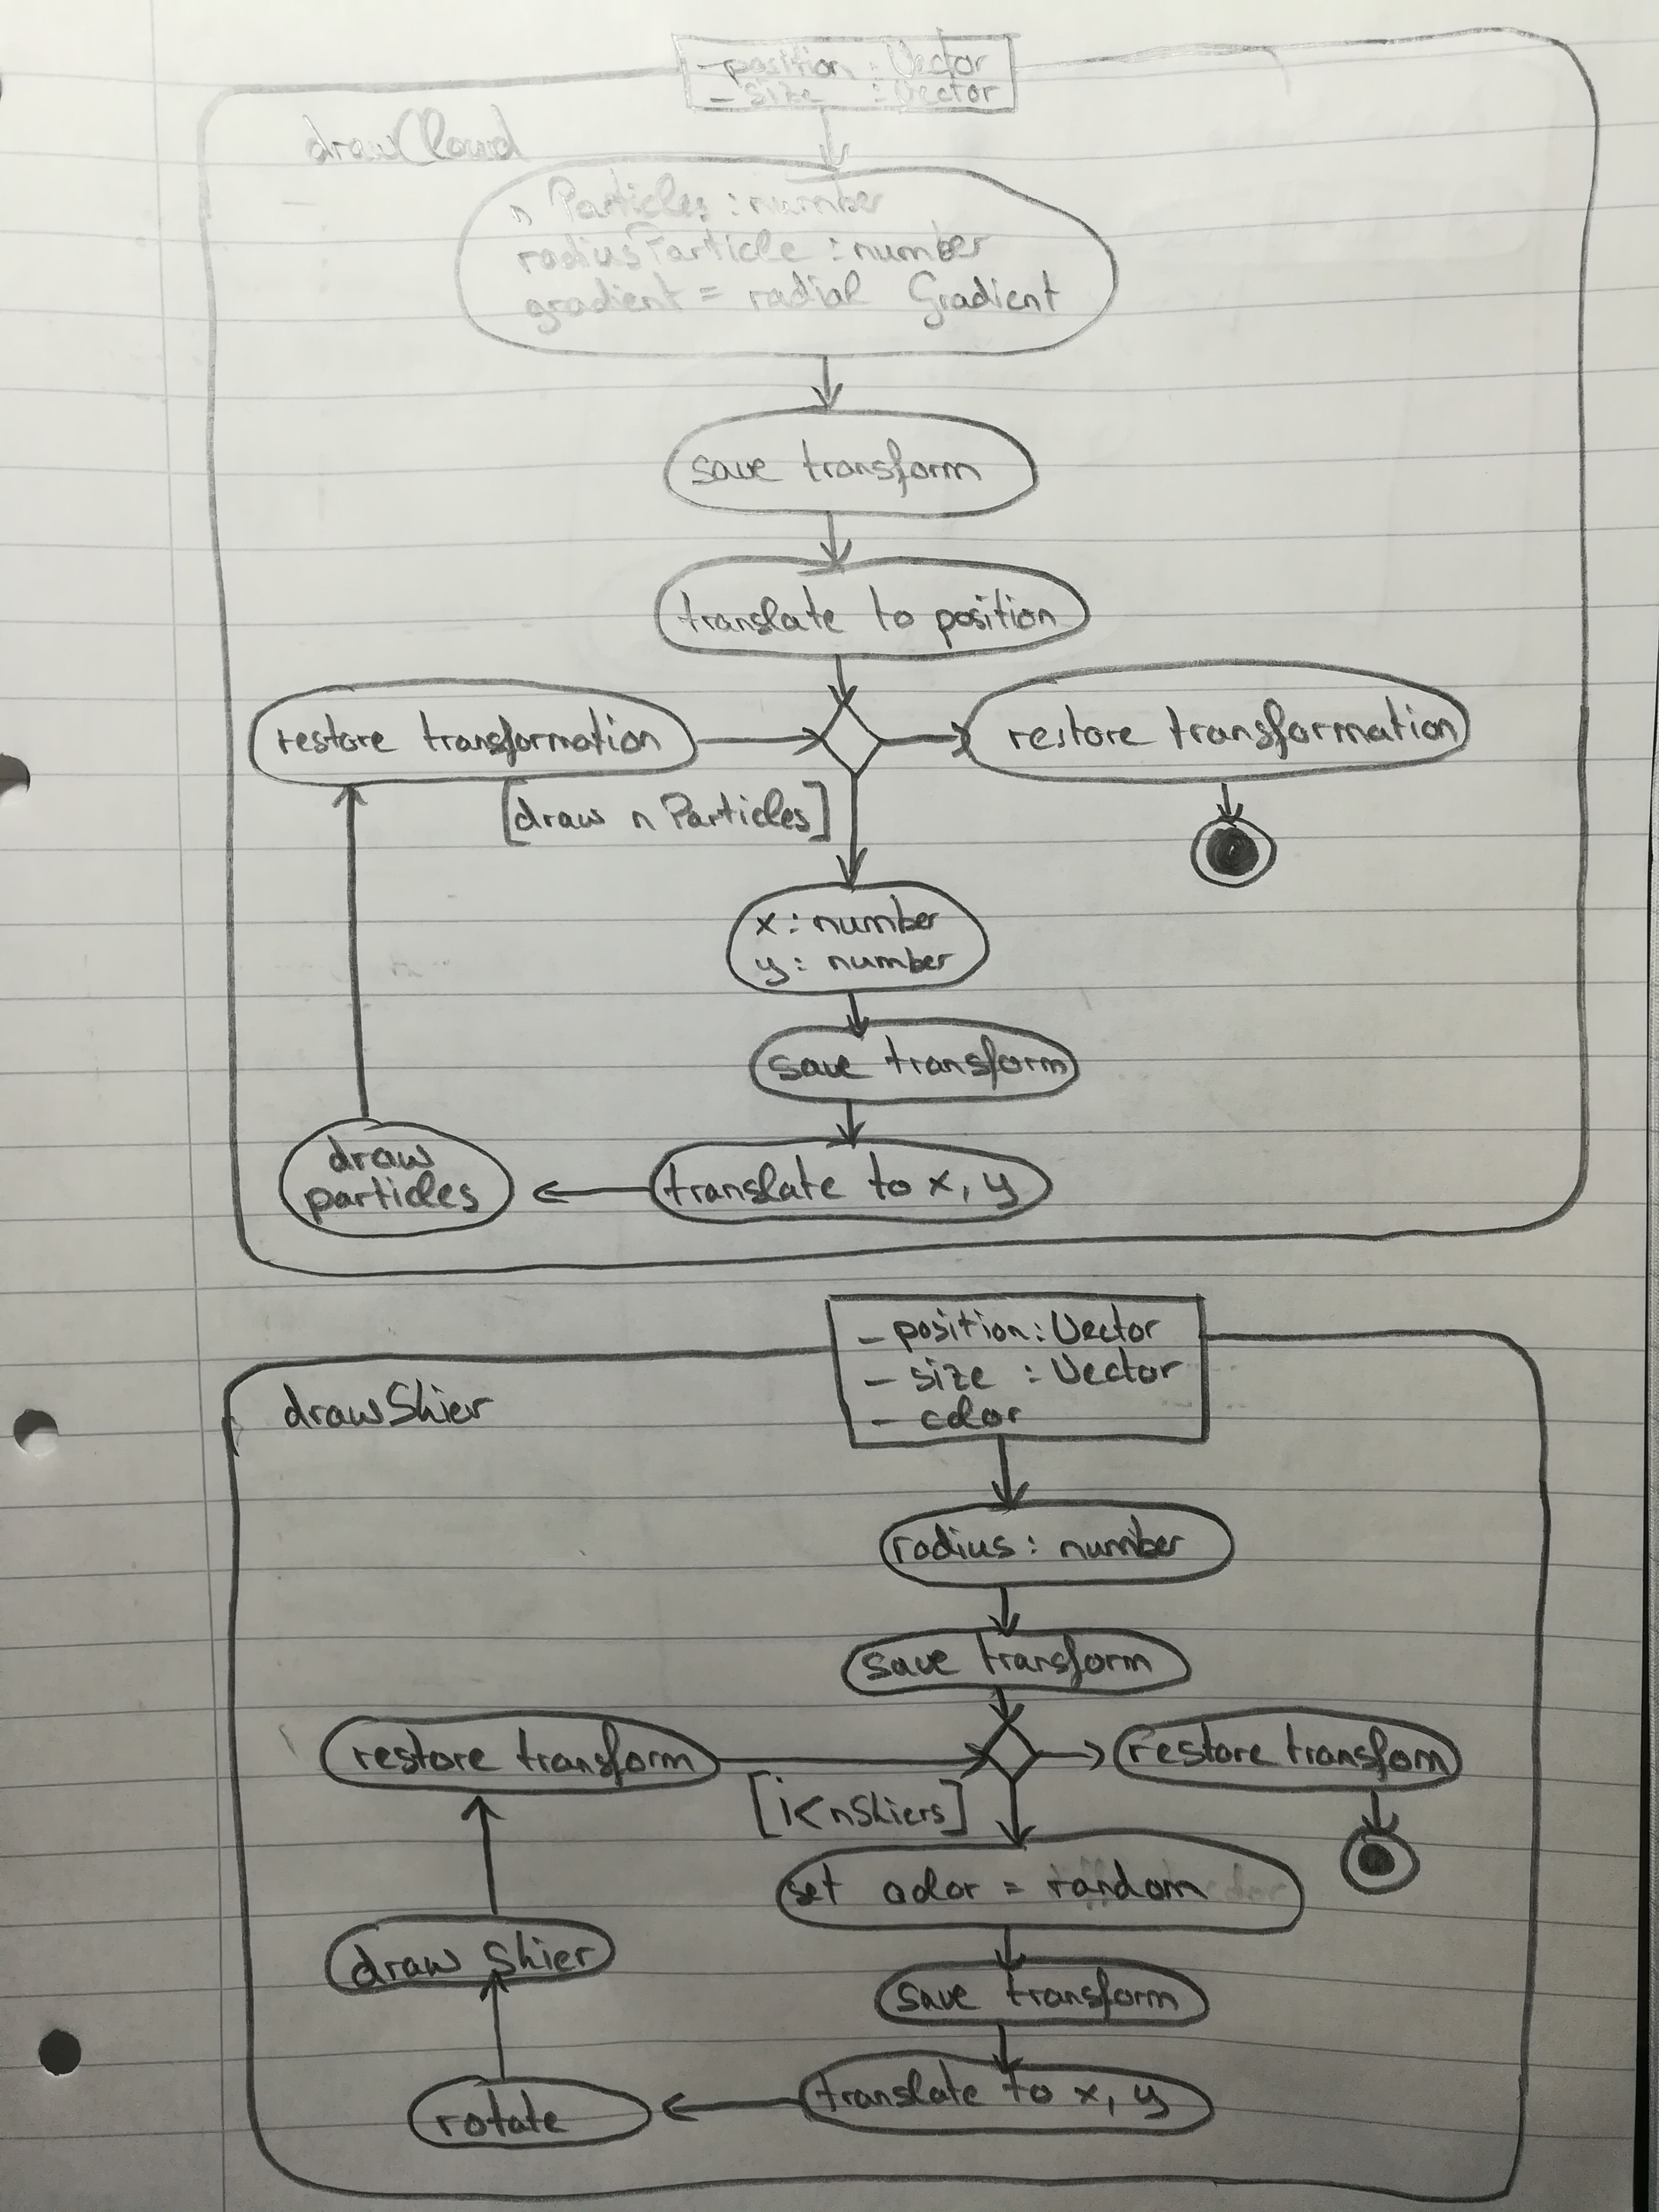 - position : Vector
- size : Vector
drawCloud
n Particles : number
radiusParticle : number
gradient = radial Gradient
save transform
translate to position
restore transformation
restore transformation
[draw n Particles]
x : number
y : number
save transform
translate to x, y
draw
particles
- position : Vector
- size : Vector
- color
drawSkier
radius : number
save transform
restore transform
restore transfom
[i < nSkiers]
set color = random
save transform
draw Skier
translate to x, y
rotate